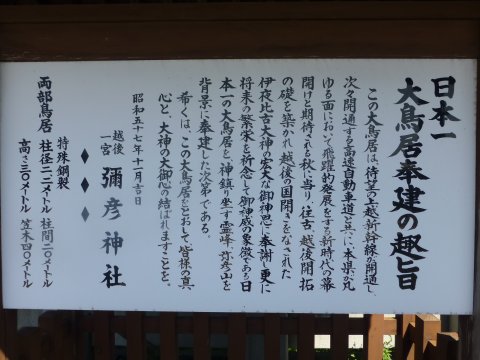 日本一
大鳥居奉建の趣旨
この大鳥居は、待望の上越新幹線が開通し、
次々開通する高速自動車道と共に、本県が凡
ゆる面において飛躍的発展をする新時代の幕
開けと期待される秋に当り、往古、越後開拓
の礎を築かれ、越後の国開きをなされた
伊夜比古大神の宏大な御神恩に奉謝し、更に
将来の繁栄を祈念して御神威の象徴である日
本一の大鳥居を、神鎮り坐す霊峰、弥彦山を
背景に奉建した次第である。
希くは、この大鳥居をとおして、皆様の真
心と、大神の大御心の結ばれますことを。
昭和五十七年十一月吉日
越後
一宮 彌彦神社
♦♦♦
特殊鋼製
両部鳥居 柱径二.二メートル 柱間二〇メートル
高さ三〇メートル 笠木四〇メートル